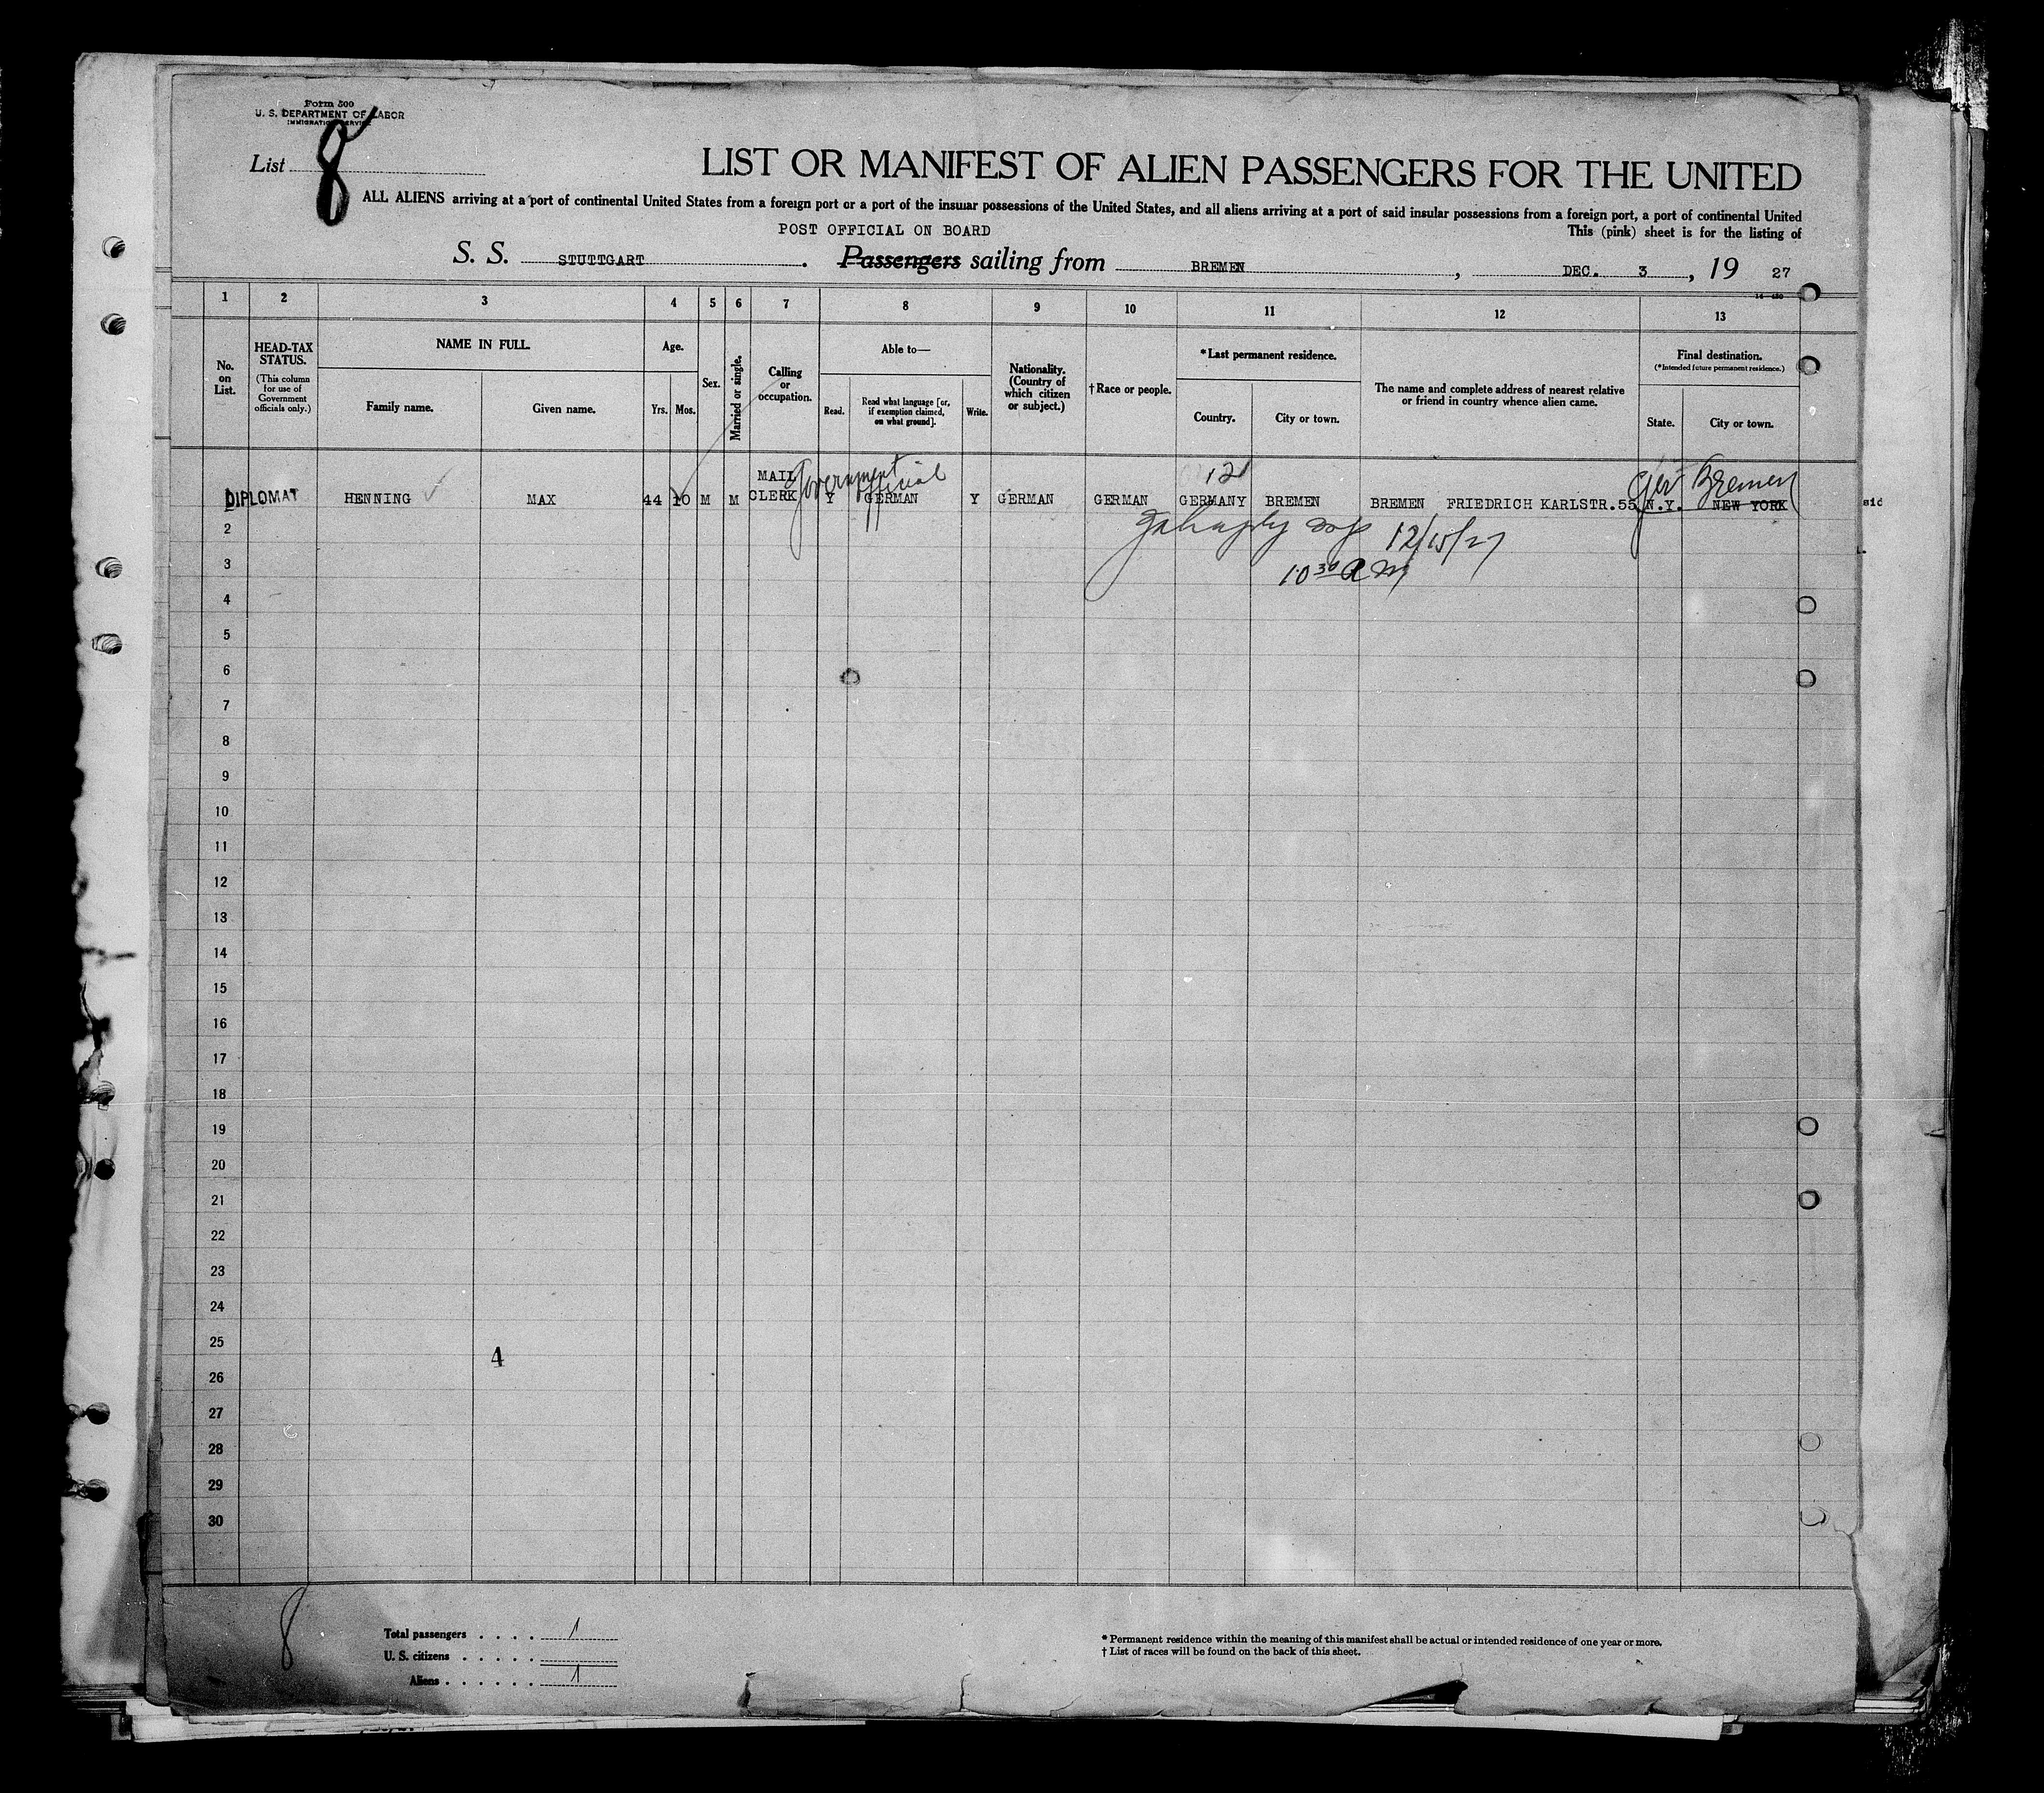 Form 500
U. S. DEPARTMENT OF LABOR
IMMIGRATION SERVICE
List 8
LIST OR MANIFEST OF ALIEN PASSENGERS FOR THE UNITED
ALL ALIENS arriving at a port of continental United States from a foreign port or a port of the insular possessions of the United States, and all aliens arriving at a port of said insular possessions from a foreign port, a port of continental United
POST OFFICIAL ON BOARD
This (pink) sheet is for the listing of
S. S. STUTTGART. Passengers sailing from BREMEN, DEC. 3, 19 27
1 2 3 4 5 6 7 8 9 10 11 12 13
No. on List.
HEAD-TAX STATUS.
(This column for use of Government officials only.)
NAME IN FULL.
Family name.
Given name.
Age.
Yrs. Mos.
Sex.
Married or single.
Calling or occupation.
Able to—
Read.
Read what language [or, if exemption claimed, on what ground].
Write.
Nationality. (Country of which citizen or subject.)
† Race or people.
*Last permanent residence.
Country.
City or town.
The name and complete address of nearest relative or friend in country whence alien came.
Final destination.
(*Intended future permanent residence.)
State.
City or town.
Government official
12
Ger Bremen
DIPLOMAT HENNING MAX 44 10 M M MAIL CLERK Y GERMAN Y GERMAN GERMAN GERMANY BREMEN BREMEN FRIEDRICH KARLSTR.55 N.Y. NEW YORK
2
12/15/27
3
10 30 AM
4
5
6
7
8
9
10
11
12
13
14
15
16
17
18
19
20
21
22
23
24
25
4
26
27
28
29
30
8
Total passengers . . . . 1
U. S. citizens . . . . .
Aliens . . . . . . 1
* Permanent residence within the meaning of this manifest shall be actual or intended residence of one year or more.
† List of races will be found on the back of this sheet.